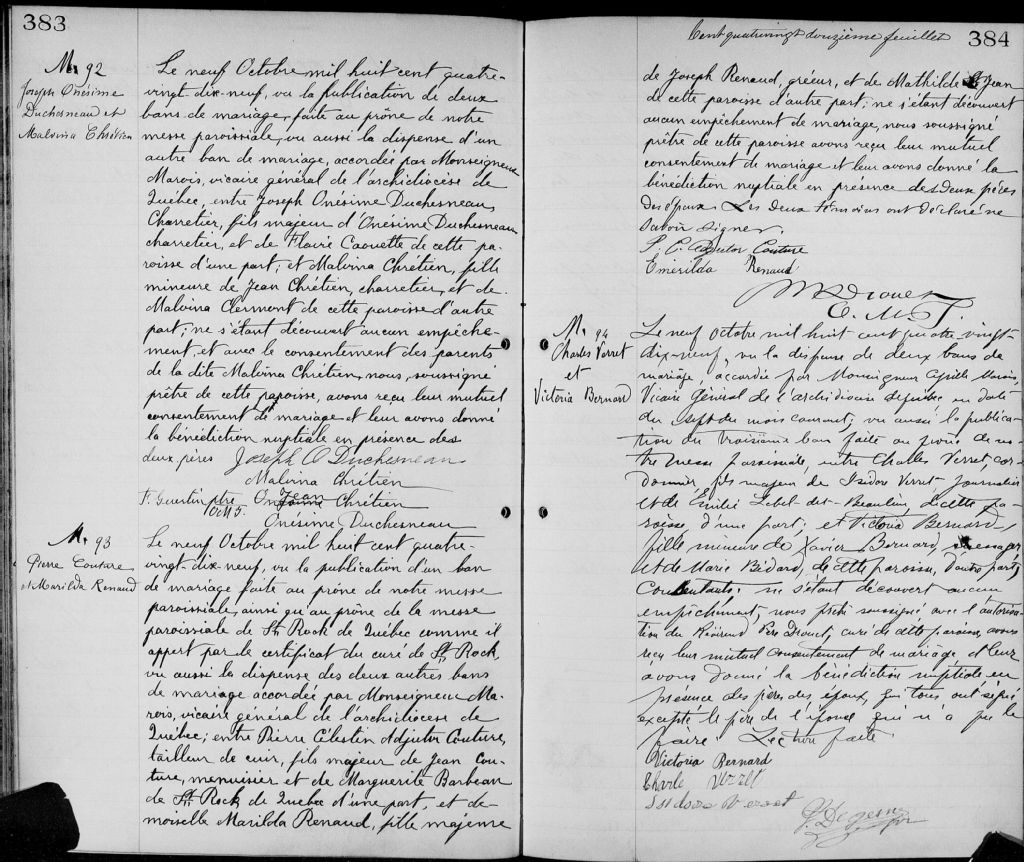 383
M. 92
Joseph Onésime
Duchesneau et
Malvina Chrétien
Le neuf Octobre mil huit cent quatre-
vingt-dix-neuf, vu la publication de deux
bans de mariage, faite au prône de notre
messe paroissiale, vu aussi la dispense d'un
autre ban de mariage, accordée par Monseigneur
Marois, vicaire général de l'archidiocèse de
Québec, entre Joseph Onésime Duchesneau,
Charretier, fils majeur d'Onésime Duchesneau
charretier, et de Flavie Caouette de cette pa-
roisse d'une part; et Malvina Chrétien, fille
mineure de Jean Chrétien, charretier, et de
Malvina Clermont de cette paroisse d'autre
part; ne s'étant découvert aucun empêche-
ment, et avec le consentement des parents
de la dite Malvina Chrétien, nous, soussigné
prêtre de cette paroisse, avons reçu leur mutuel
consentement de mariage et leur avons donné
la bénédiction nuptiale en présence des
deux pères
Joseph O Duchesneau
Malvina Chrétien
Jean Chrétien
F. Guertin ptre
Onésime Duchesneau
M. 93
Pierre Couture
et Marilda Renaud
Le neuf Octobre mil huit cent quatre-
vingt-dix-neuf, vu la publication d'un ban
de mariage faite au prône de notre messe
paroissiale, ainsi qu'au prône de la messe
paroissiale de St. Rock de Québec comme il
appert par le certificat du curé de St. Rock,
vu aussi la dispense des deux autres bans
de mariage accordé par Monseigneur Ma-
rois, vicaire général de l'archidiocèse de
Québec; entre Pierre Célestin Adjutor Couture,
tailleur de cuir, fils majeur de Jean Cou-
ture, menuisier et de Marguerite Barbeau
de St. Rock de Quebec d'une part, et de-
moiselle Marilda Renaud, fille majeure
Cent quatrevingt douzième feuillet
384
de Joseph Renaud, gréeur, et de Mathilde St Jean
de cette paroisse d'autre part; ne s'étant découvert
aucun empêchement de mariage, nous soussigné
prêtre de cette paroisse avons reçu leur mutuel
consentement de mariage et leur avons donné la
bénédiction nuptiale en présence des deux pères
des époux. Les deux témoins ont déclaré ne
savoir signer.
P. C. Adjutor Couture
Emérilda Renaud
Drouet
M. 94
Charles Verret
et
Victoria Bernard
Le neuf Octobre mil huit cent quatre-vingt-
dix-neuf, vu la dispense de deux bans de
mariage, accordée par Monseigneur Cyrille Marois,
Vicaire Général de l'archidiocèse de Québec en date
du sept du mois courant; vu aussi la publica-
tion du troisième ban faite au prône de no-
tre messe paroissiale, entre Charles Verret, cor-
donnier, fils majeur de Isidore Verret journalier
et de Emélie Lebel dit Beaulieu, de cette pa-
roisse, d'une part; et Victoria Bernard,
fille mineure de Xavier Bernard, messager
et de Marie Bédard, de cette paroisse, d'autre part,
consentants; ne s'étant découvert aucun
empêchement, nous prêtre soussigné avec l'autorisa-
tion du Révérend Père Drouet, curé de cette paroisse, avons
reçu leur mutuel consentement de mariage & leur
avons donné la bénédiction nuptiale en
présence des pères des époux, qui tous ont signé
excepté le père de l'épouse qui n'a pu le
faire. Lecture faite
Victoria Bernard
Charle Verret
Isidore Verret